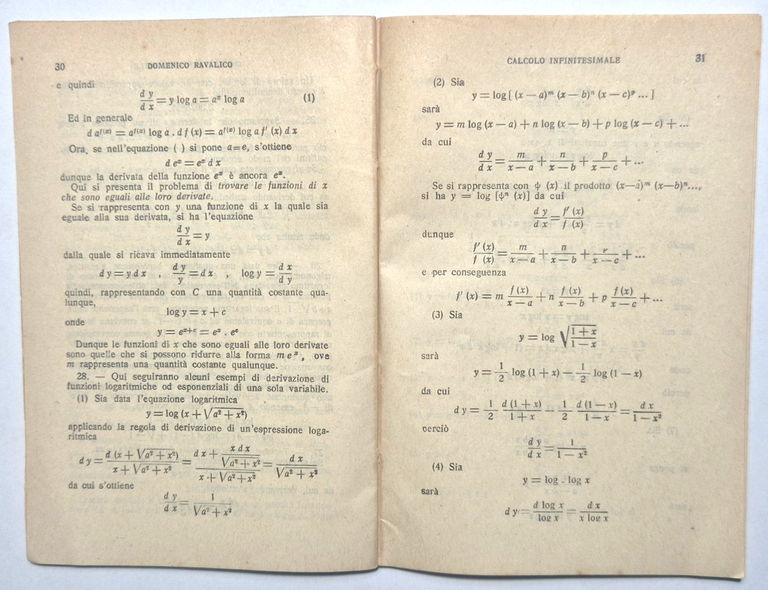 30 DOMENICO RAVALICO
e quindi
d y / d x = y log a = aˣ log a (1)
Ed in generale
d a^f(x) = a^f(x) log a . d f (x) = a^f(x) log a f′ (x) d x
Ora, se nell'equazione ( ) si pone a=e, s'ottiene
d eˣ = eˣ d x
dunque la derivata della funzione eˣ è ancora eˣ.
Qui si presenta il problema di trovare le funzioni di x
che sono eguali alle loro derivate.
Se si rappresenta con y una funzione di x la quale sia
eguale alla sua derivata, si ha l'equazione
d y / d x = y
dalla quale si ricava immediatamente
d y = y d x , d y / y = d x , log y = d x / d y
quindi, rappresentando con C una quantità costante qua-
lunque,
log y = x + c
onde
y = eˣ⁺ᶜ = eˣ . eᶜ
Dunque le funzioni di x che sono eguali alle loro derivate
sono quelle che si possono ridurre alla forma m eˣ, ove
m rappresenta una quantità costante qualunque.
28. — Qui seguiranno alcuni esempi di derivazione di
funzioni logaritmiche od esponenziali di una sola variabile.
(1) Sia data l'equazione logaritmica
y = log (x + √(a² + x²))
applicando la regola di derivazione di un'espressione loga-
ritmica
d y = d (x + √(a² + x²)) / (x + √(a² + x²)) = (d x + x d x / √(a² + x²)) / (x + √(a² + x²)) = d x / √(a² + x²)
da cui s'ottiene
d y / d x = 1 / √(a² + x²)
CALCOLO INFINITESIMALE 31
(2) Sia
y = log [ (x — a)ᵐ (x — b)ⁿ (x — c)ᵖ ... ]
sarà
y = m log (x — a) + n log (x — b) + p log (x — c) + ...
da cui
d y / d x = m / (x — a) + n / (x — b) + p / (x — c) + ...
Se si rappresenta con ψ (x) il prodotto (x—a)ᵐ (x—b)ⁿ...,
si ha y = log [ψⁿ (x)] da cui
d y / d x = f′ (x) / f (x)
dunque
f′ (x) / f (x) = m / (x — a) + n / (x — b) + / (x — c) + ...
e per conseguenza
f′ (x) = m f (x) / (x — a) + n f (x) / (x — b) + p f (x) / (x — c) + ...
(3) Sia
y = log √((1 + x) / (1 — x))
sarà
y = 1/2 log (1 + x) — 1/2 log (1 — x)
da cui
d y = 1/2 d (1 + x) / (1 + x) — 1/2 d (1 — x) / (1 — x) = d x / (1 — x²)
perciò
d y / d x = 1 / (1 — x²)
(4) Sia
y = log . log x
sarà
d y = d log x / log x = d x / x log x